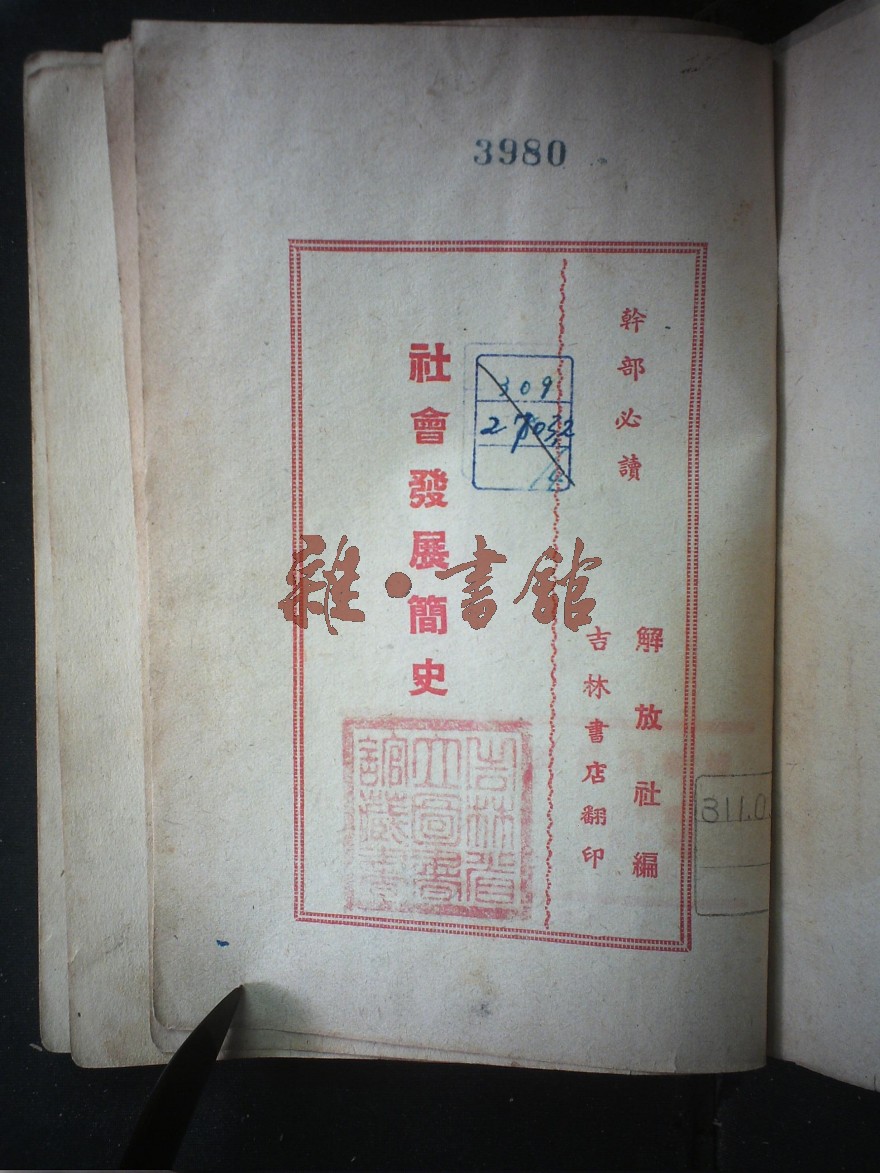 3980
幹部必讀
解放社編
吉林書店翻印
309
社會發展簡史
雜·書館
吉林省
立圖書
館藏書
311.0